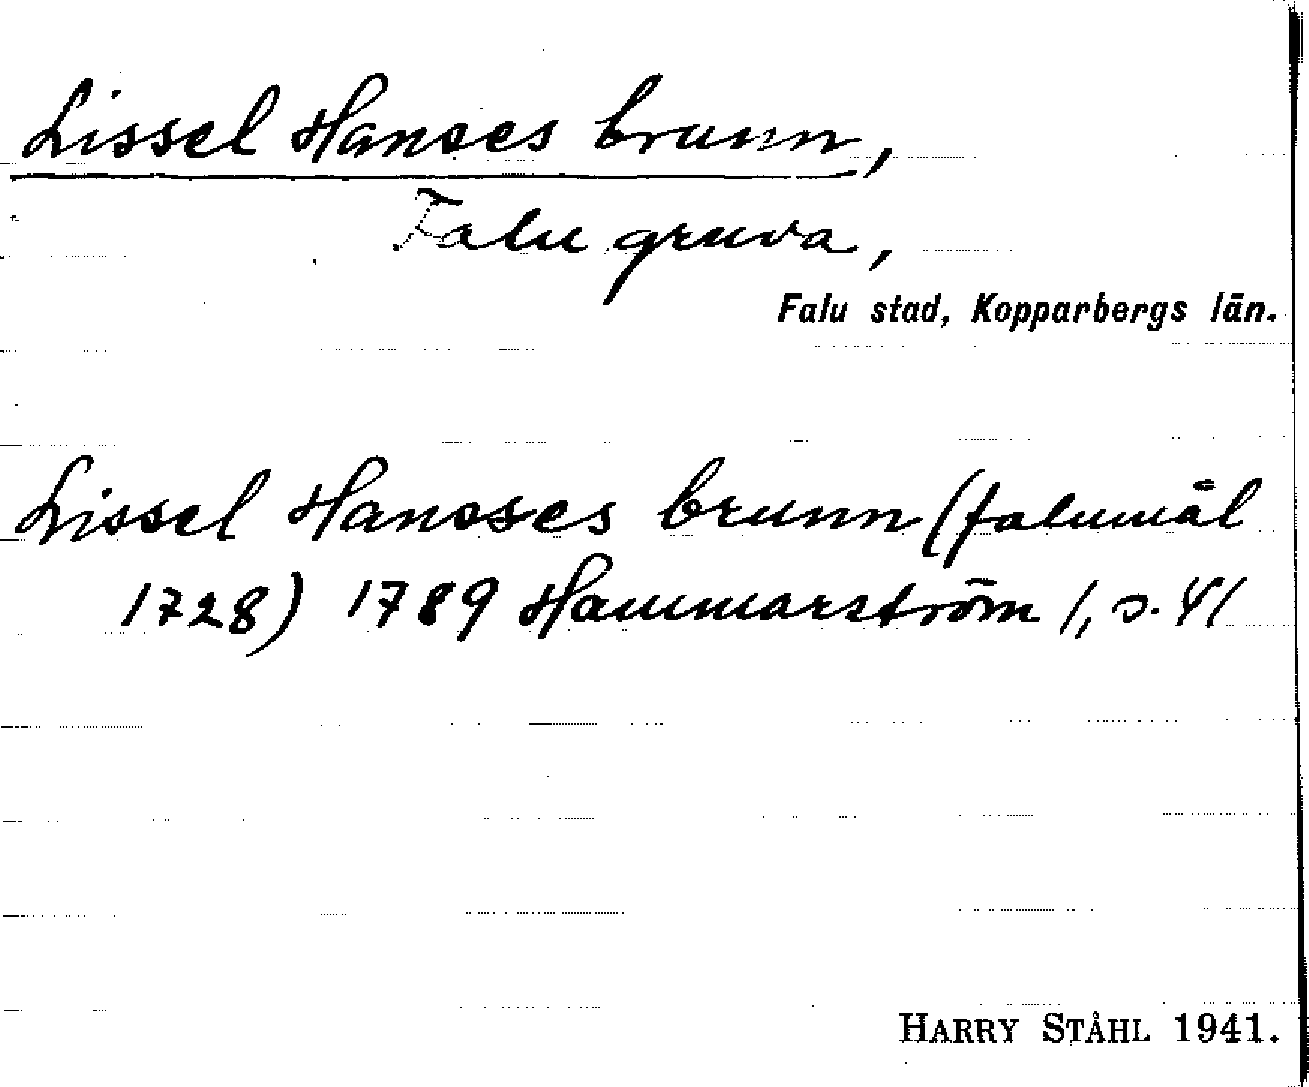 Lissel Hanses brunn,
Falu gruva,
Falu stad, Kopparbergs län.
Lissel Hansses brunn (falumål
1728) 1789 Hammarström 1, s. 41
HARRY STÅHL 1941.